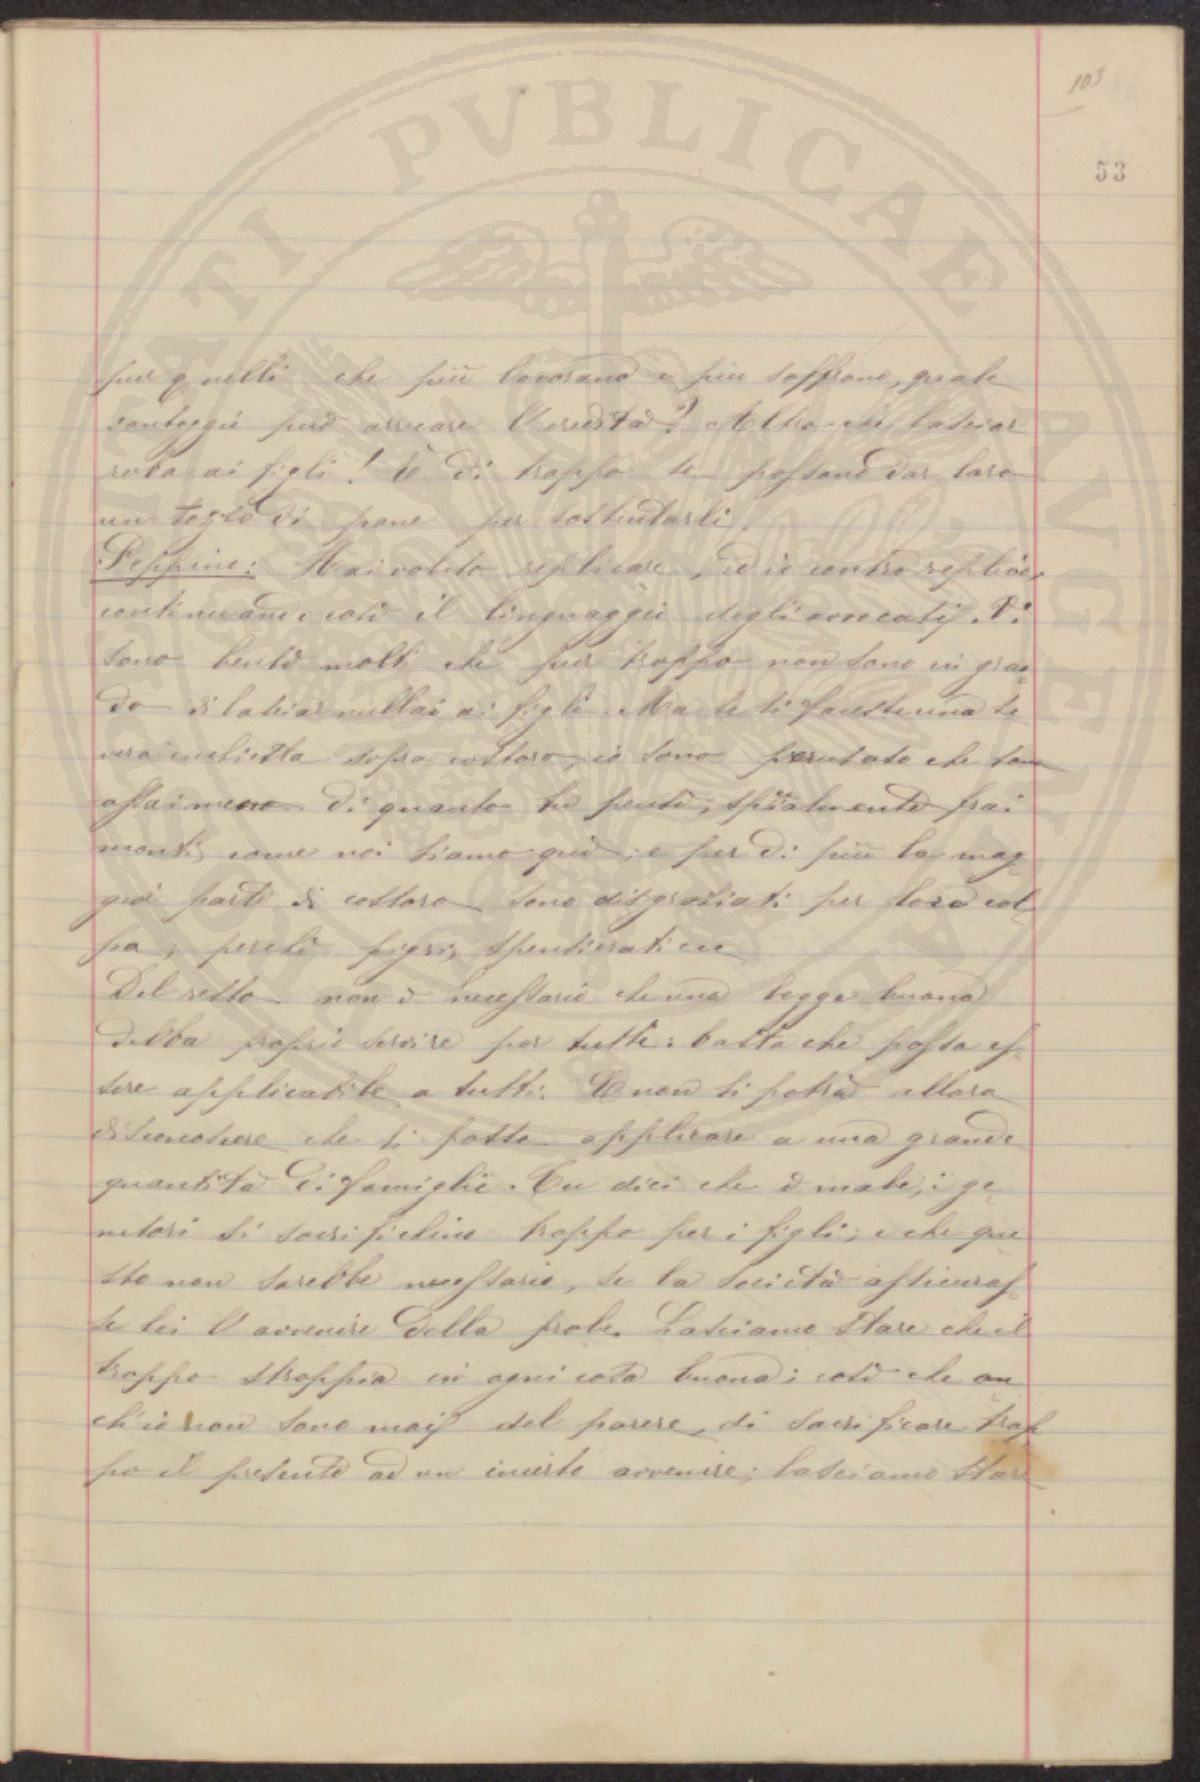 103
53
PVBLICAE
pur quelli che più lavorano e più soffrono, quale
vantaggio può arrecare l'eredità? Altro che lasciar
roba ai figli! È di troppo se possano dar loro
un tozzo di pane per sostentarli.
Peppino: Hai voluto replicare, ed io contro replico,
continuando così il linguaggio degli avvocati. Vi
sono bensì molti che pur troppo non sono in gra-
do di lasciar nulla ai figli. Ma se si facesse una se
vera inchiesta sopra costoro, io sono persuaso che son
assai meno di quanto tu pensi, specialmente fra i
monti, come noi siamo quì; e per di più la mag-
gior parte di costoro sono disgraziati per loro col
pa, perchè pigri, spensierati ecc
Del resto non è necessario che una legge buona
debba proprio servire per tutti: basta che possa es-
sere applicabile a tutti. E non si potrà allora
disconoscere che si possa applicare a una grande
quantità di famiglie. Tu dici che è male, i ge-
nitori si sacrifichino troppo per i figli; e che que
sto non sarebbe necessario, se la società assicuras-
se lei l'avvenire della prole. Lasciamo stare che il
troppo stroppia in ogni cosa buona; così che an
ch'io non sono mai del parere, di sacrificare trop
po il presente ad un incerto avvenire; lasciamo stare